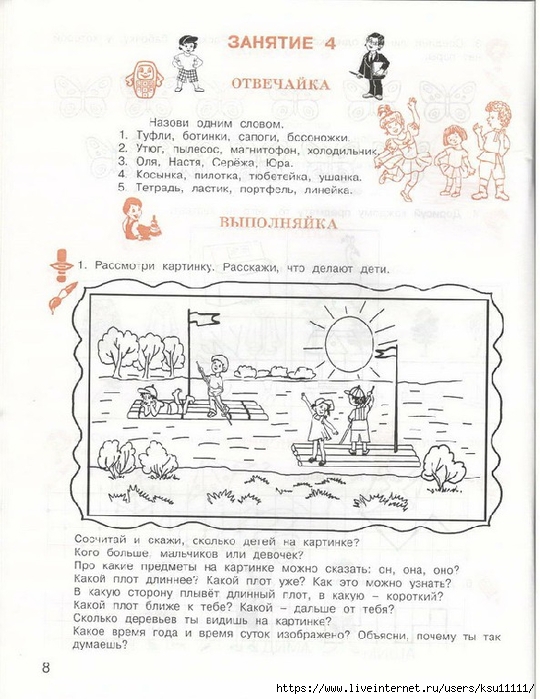 ЗАНЯТИЕ 4
ОТВЕЧАЙКА
Назови одним словом.
1. Туфли, ботинки, сапоги, босоножки.
2. Утюг, пылесос, магнитофон, холодильник.
3. Оля, Настя, Серёжа, Юра.
4. Косынка, пилотка, тюбетейка, ушанка.
5. Тетрадь, ластик, портфель, линейка.
ВЫПОЛНЯЙКА
1. Рассмотри картинку. Расскажи, что делают дети.
Сосчитай и скажи, сколько детей на картинке?
Кого больше мальчиков или девочек?
Про какие предметы на картинке можно сказать: он, она, оно?
Какой плот длиннее? Какой плот уже? Как это можно узнать?
В какую сторону плывёт длинный плот, в какую – короткий?
Какой плот ближе к тебе? Какой – дальше от тебя?
Сколько деревьев ты видишь на картинке?
Какое время года и время суток изображено? Объясни, почему ты так
думаешь?
8
https://www.liveinternet.ru/users/ksu11111/